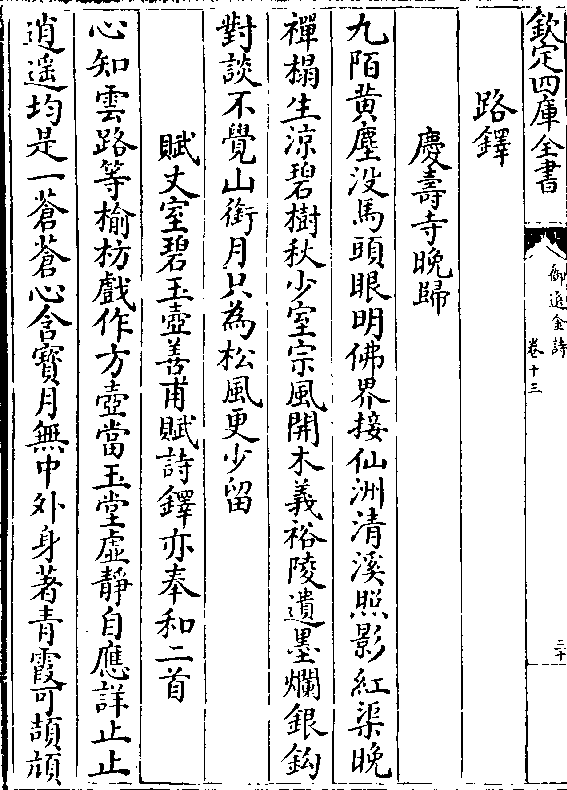 欽定四庫全書
御選金詩
卷十三
三十
路鐸
慶壽寺晚歸
九陌黄塵没馬頭眼明佛界接仙洲清溪照影紅渠晚
禪榻生凉碧樹秋少室宗風開木義裕陵遺墨爛銀鈎
對談不覺山銜月只為松風更少留
賦丈室碧玉壺善甫賦詩鐸亦奉和二首
心知雲路等榆枋戲作方壺當玉堂虚靜自應詳止止
逍遥均是一蒼蒼心含寶月無中外身著青霞可頡頏